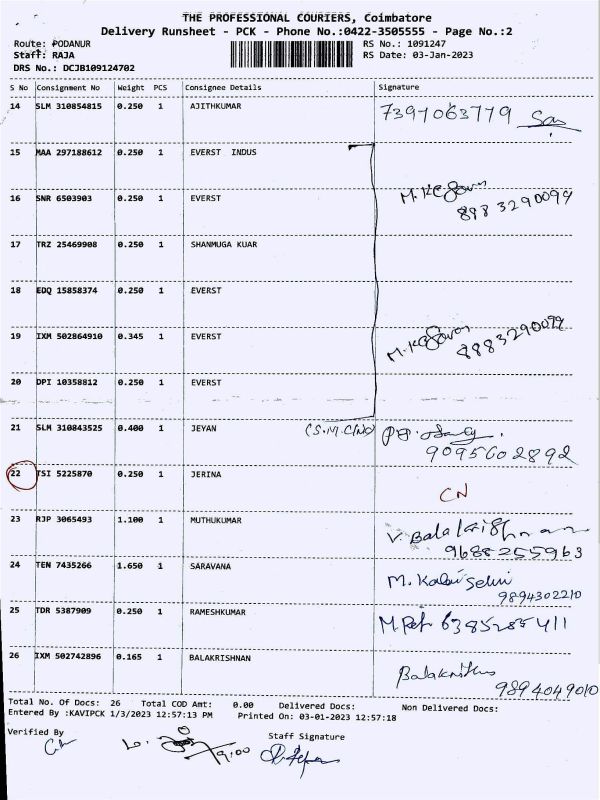 THE PROFESSIONAL COURIERS, Coimbatore
Delivery Runsheet - PCK - Phone No.:0422-3505555 - Page No.:2
Route: PODANUR RS No.: 1091247
Staff: RAJA RS Date: 03-Jan-2023
DRS No.: DCJB109124702
S No Consignment No Weight PCS Consignee Details Signature
14 SLM 310854815 0.250 1 AJITHKUMAR 7397063779
15 MAA 297188612 0.250 1 EVERST INDUS
16 SNR 6503903 0.250 1 EVERST 8983290099
17 TRZ 25469908 0.250 1 SHANMUGA KUAR
18 EDQ 15858374 0.250 1 EVERST
19 IXM 502864910 0.345 1 EVERST 8883290099
20 DPI 10358812 0.250 1 EVERST
21 SLM 310843525 0.400 1 JEYAN
9095602892
22 TSI 5225870 0.250 1 JERINA CN
23 RJP 3065493 1.100 1 MUTHUKUMAR V. Balakrishnan
9688255963
24 TEN 7435266 1.650 1 SARAVANA M. Kalai Selvi
9894302210
25 TDR 5387909 0.250 1 RAMESHKUMAR
26 IXM 502742896 0.165 1 BALAKRISHNAN
9894049010
Total No. Of Docs: 26 Total COD Amt: 0.00 Delivered Docs: Non Delivered Docs:
Entered By :KAVIPCK 1/3/2023 12:57:13 PM Printed On: 03-01-2023 12:57:18
Verified By Staff Signature